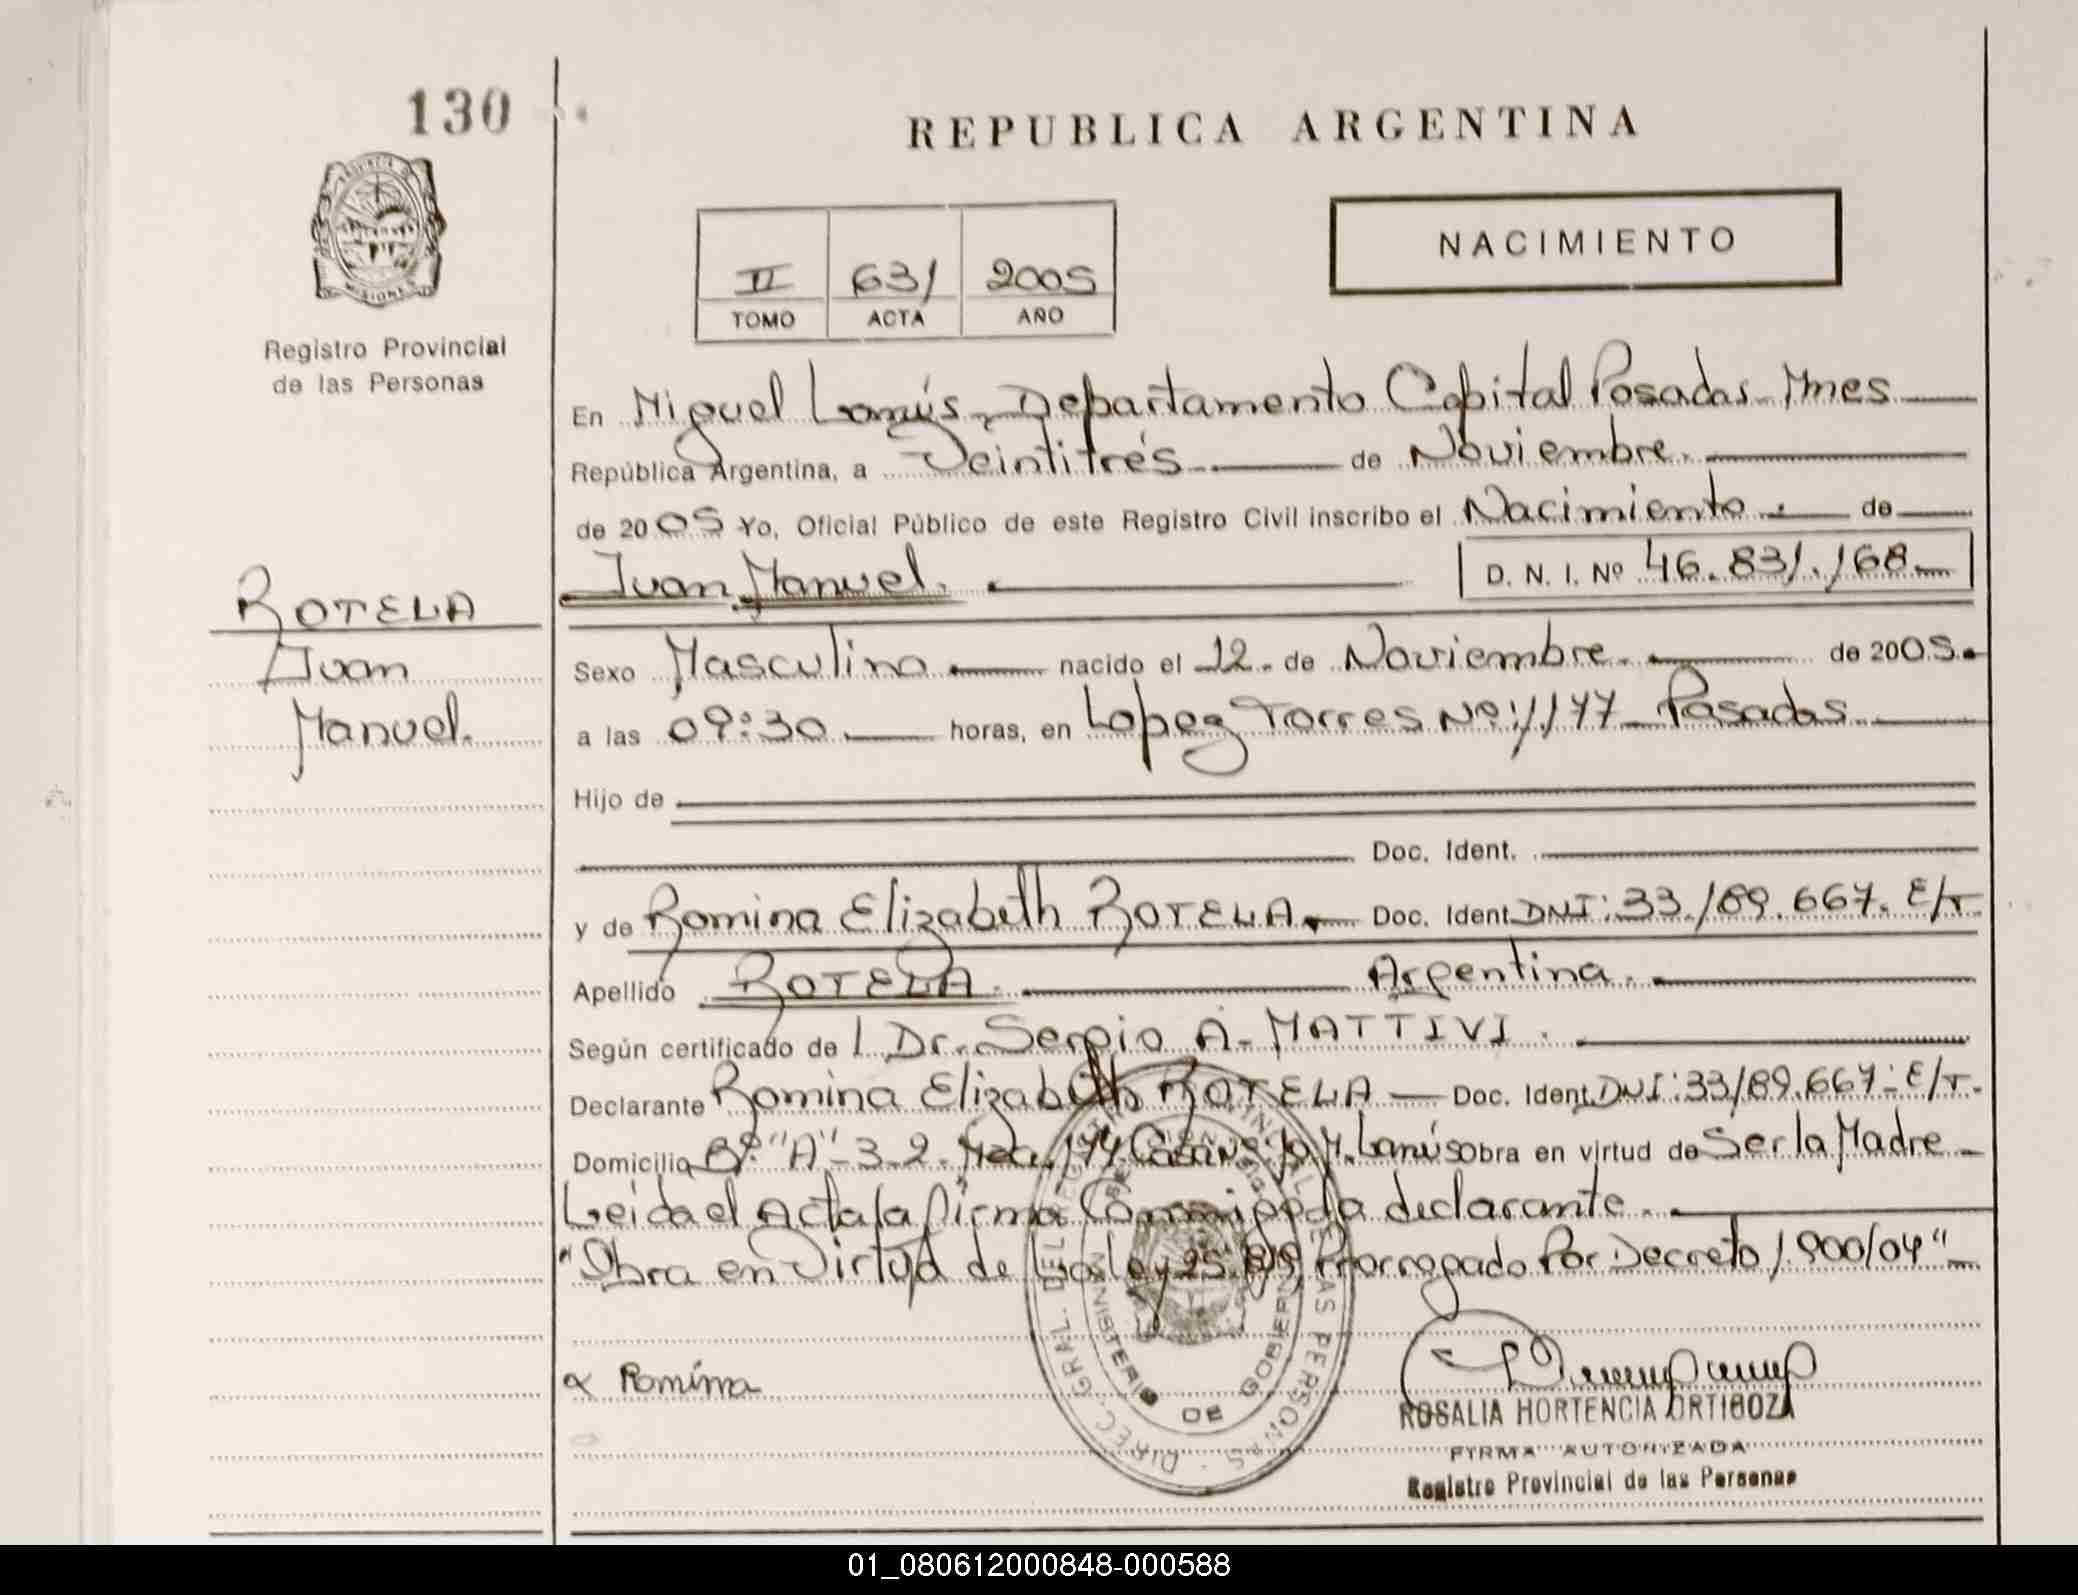 130
REPUBLICA ARGENTINA
NACIMIENTO
II 631 2005
TOMO ACTA AÑO
MISIONES
Registro Provincial
de las Personas
En Miguel Lanús, Departamento Capital Posadas Mnes
República Argentina, a Veintitrés de Noviembre.
de 2005 Yo, Oficial Público de este Registro Civil inscribo el Nacimiento de
Juan Manuel. D. N. I. Nº 46.831.168
ROTELA
Juan
Manuel.
Sexo Masculino nacido el 12 de Noviembre. de 2005.
a las 09:30 horas, en Lopez Torres Nº 1177 Posadas
Hijo de
Doc. Ident.
y de Romina Elizabeth ROTELA Doc. Ident. DNI: 33.189.667. E/T.
Apellido ROTELA. Argentina.
Según certificado de l Dr. Sergio A. MATTIVI.
Declarante Romina Elizabeth ROTELA Doc. Ident. DNI: 33.189.667. E/T.
Domicilio Bº "A" 3.2. M. Lanús obra en virtud de Ser la Madre
Leida el Acta la firma Conmigo la declarante.
"Obra en Virtud de La Ley 25.819 Prorrogado Por Decreto 1.900/04"
Romina
DIREC. GRAL. DEL REG. PROVINCIAL DE LAS PERSONAS
MINISTERIO DE GOBIERNO
ROSALIA HORTENCIA ORTIGOZA
FIRMA AUTORIZADA
Registro Provincial de las Personas
01_080612000848-000588